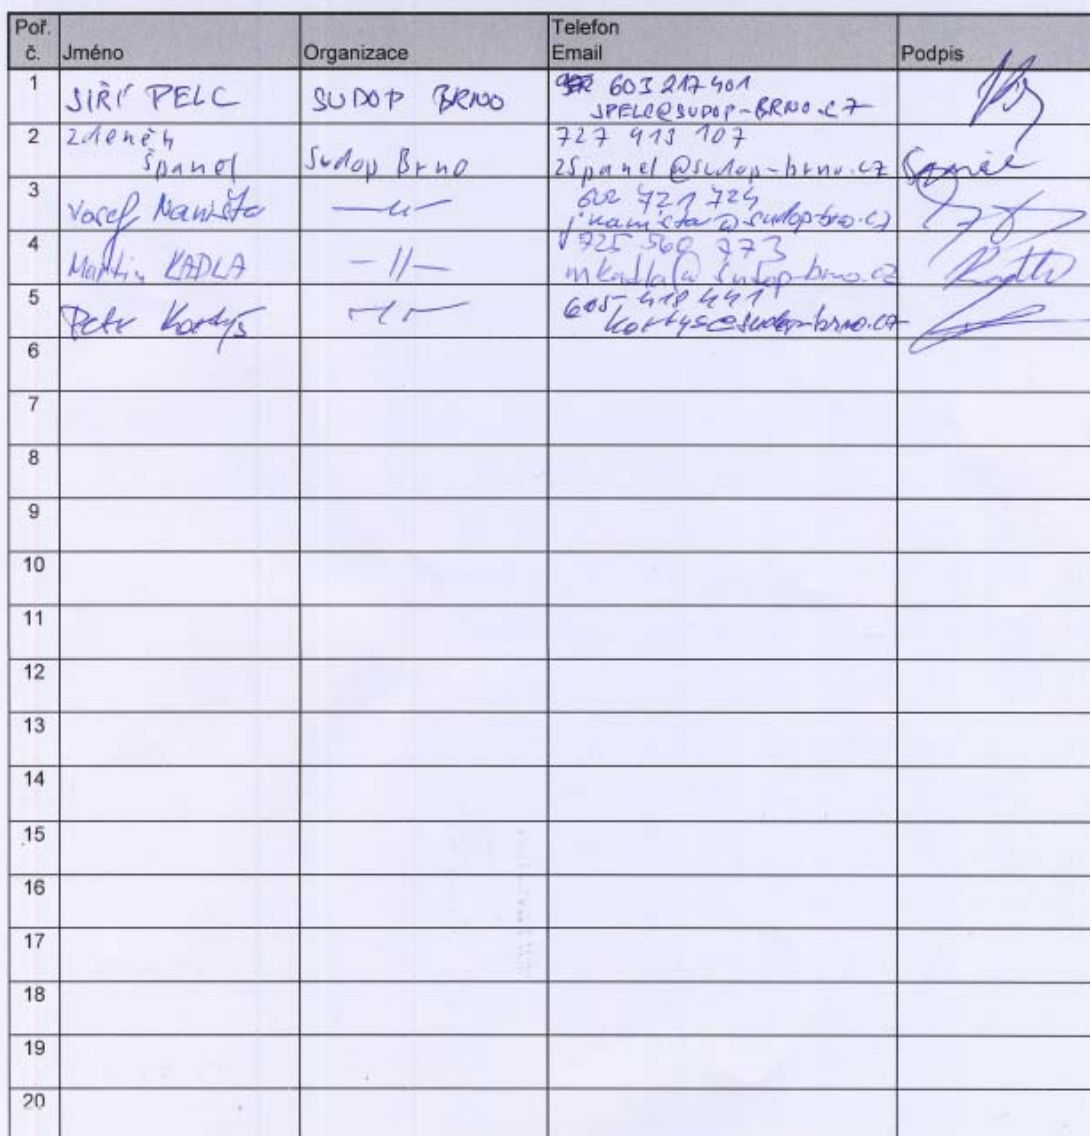 Poř.
č. Jméno Organizace Telefon
Email Podpis
1 JIŘÍ PELC SUDOP BRNO 603 217 401
JPELC@SUDOP-BRNO.CZ
2 Zdeněk
Španel Sudop Brno 727 913 107
zspanel@sudop-brno.cz
3 Josef — 〃 — 602 721 724
4 Martin KADLA — 〃 — 725 560 773
mkadla@sudop-brno.cz
5 Petr Kortyš — 〃 — 605 418 441
kortys@sudop-brno.cz
6
7
8
9
10
11
12
13
14
15
16
17
18
19
20